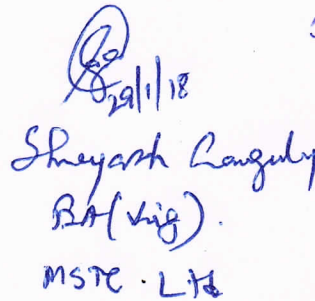 29/1/18
Shreyash Ganguly
BA(Vig).
MSTC. Ltd